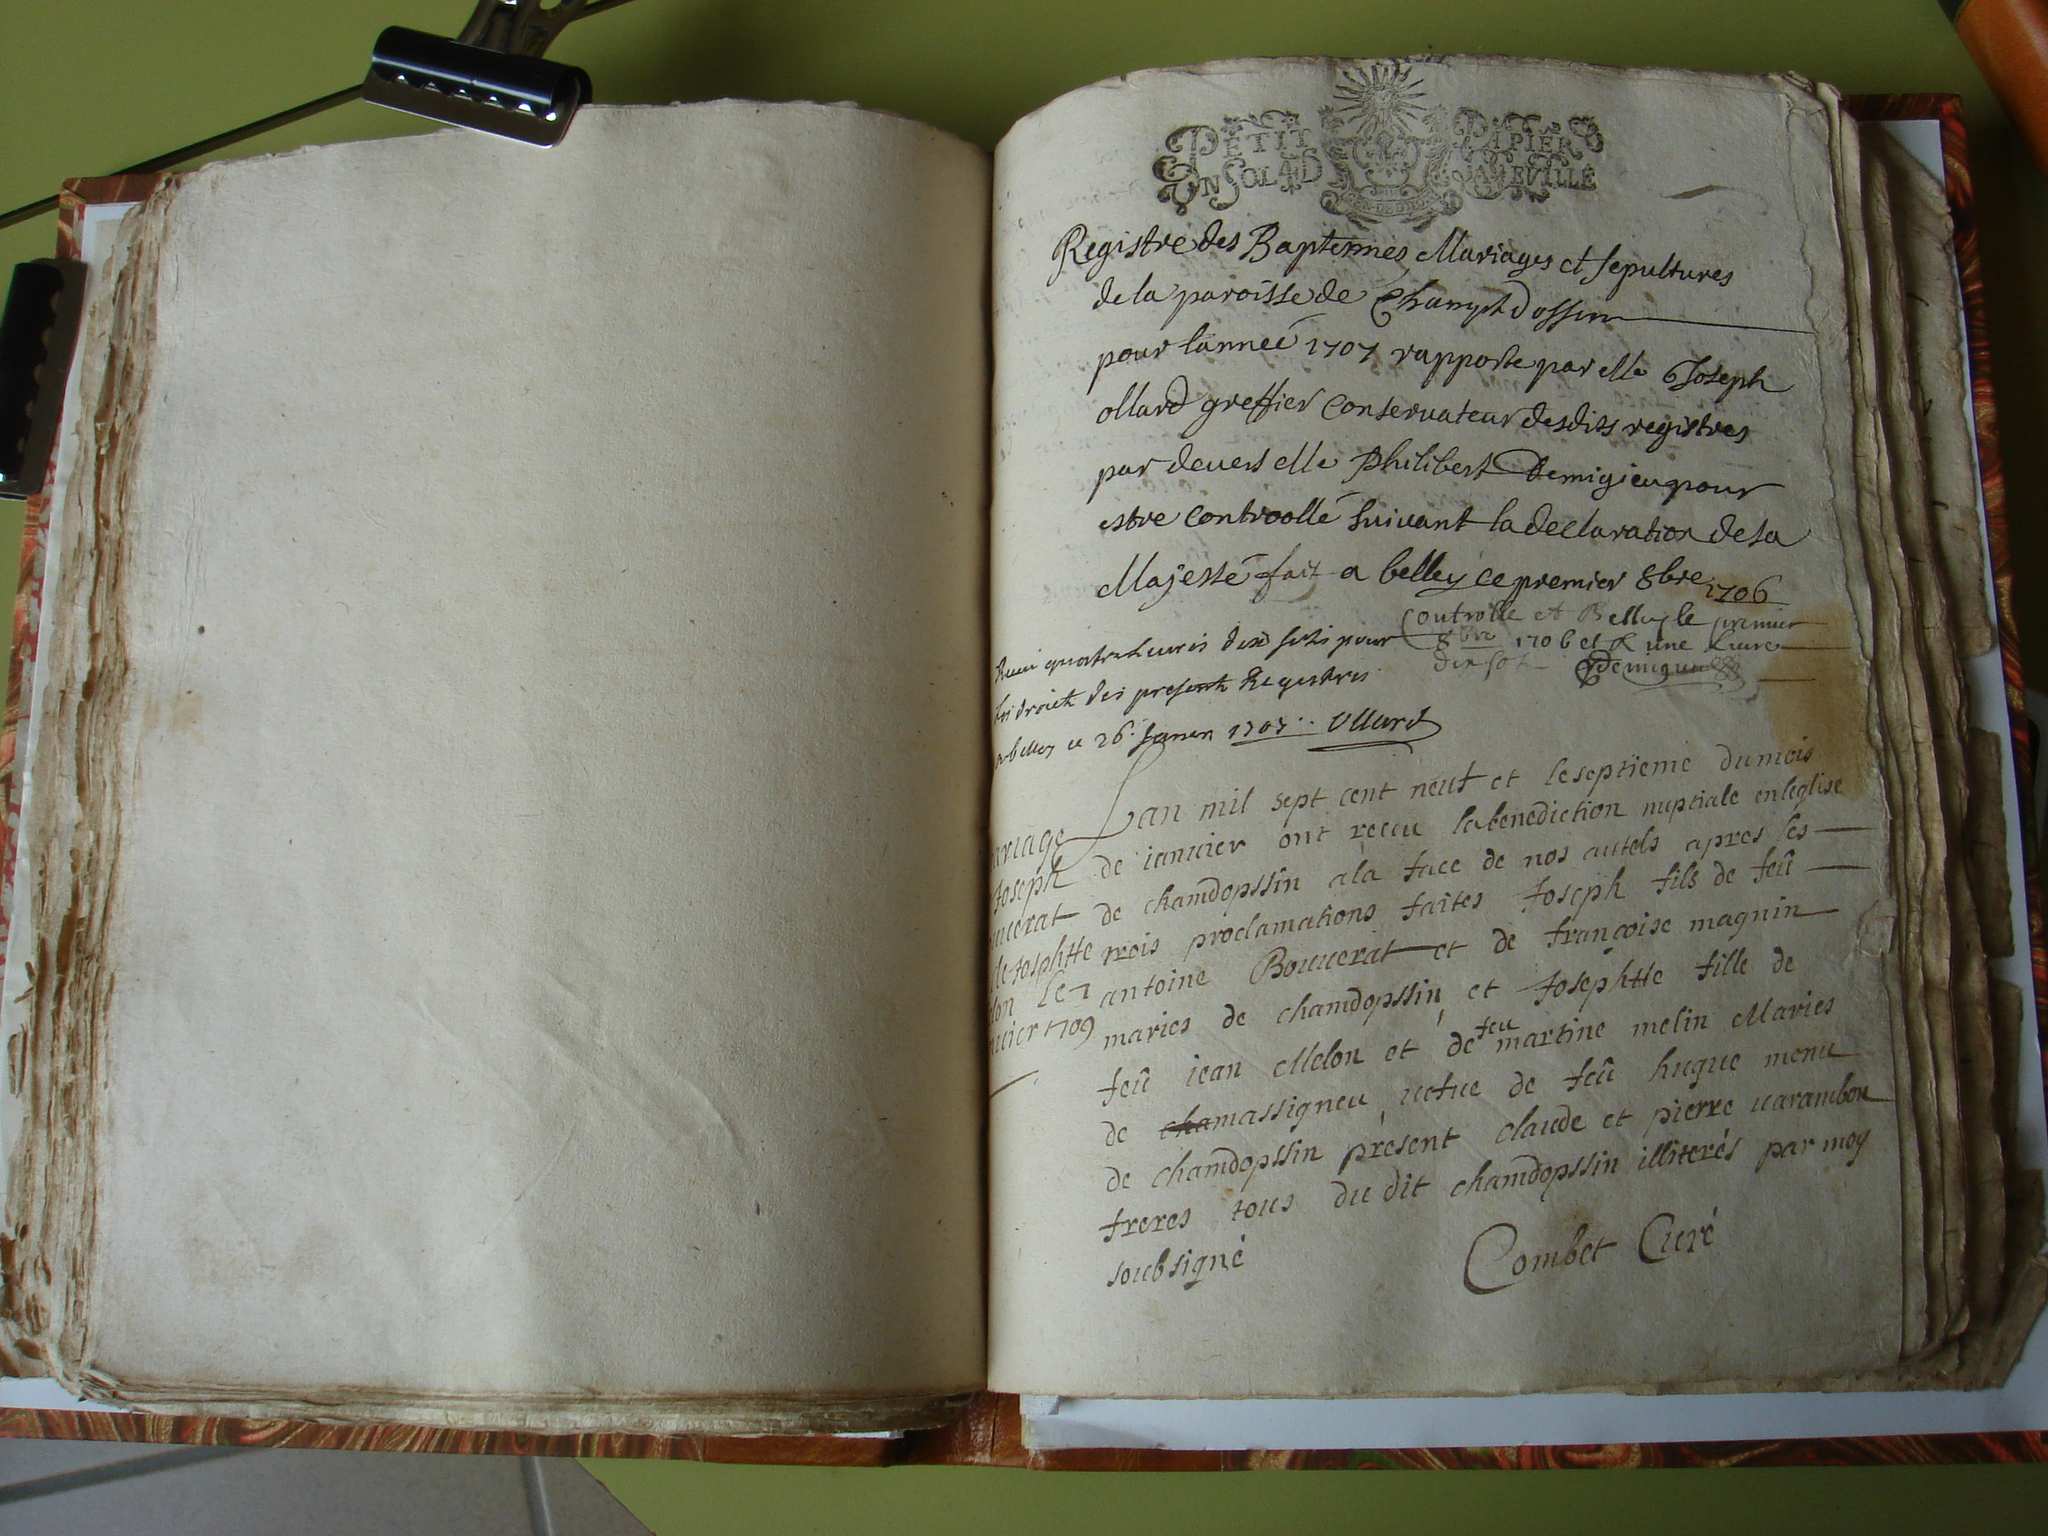 PETIT PAPIER
UN SOL LA FEUILLE
Registre des Baptemes Mariages et sepultures
de la paroisse de Champt Dossin
pour l'année 1707 rapporte par Me Joseph
ollard greffier Conservateur desdits registres
par devers Me Philibert Demigieu pour
estre controollé suivant la declaration de sa
Majesté fait a belley ce premier 8bre 1706
Controlle et Belley le premier
8bre 1706 et R une livre
dix sols Demigieu
quatre livres dix sols pour
les droits des present Registres
a belley ce 26 1707 Ollard
Lan mil sept cent neuf et le septieme du mois
de ianuier ont reccu la benediction nuptiale en leglise
de chamdopssin a la face de nos autels apres les
trois proclamations faites Joseph fils de feû
antoine Bouuerat et de françoise magnin
maries de chamdopssin, et Josephtte fille de
feû iean Melon et de feu martine melin Maries
de chamassigneu, uefue de feû hugue menu
de chamdopssin present claude et pierre uarambon
freres tous du dit chamdopssin illiterés par moy
soubsigné Combet Curé
ariage
Joseph
uuerat
de Josphtte
lon le 7
nuier 1709